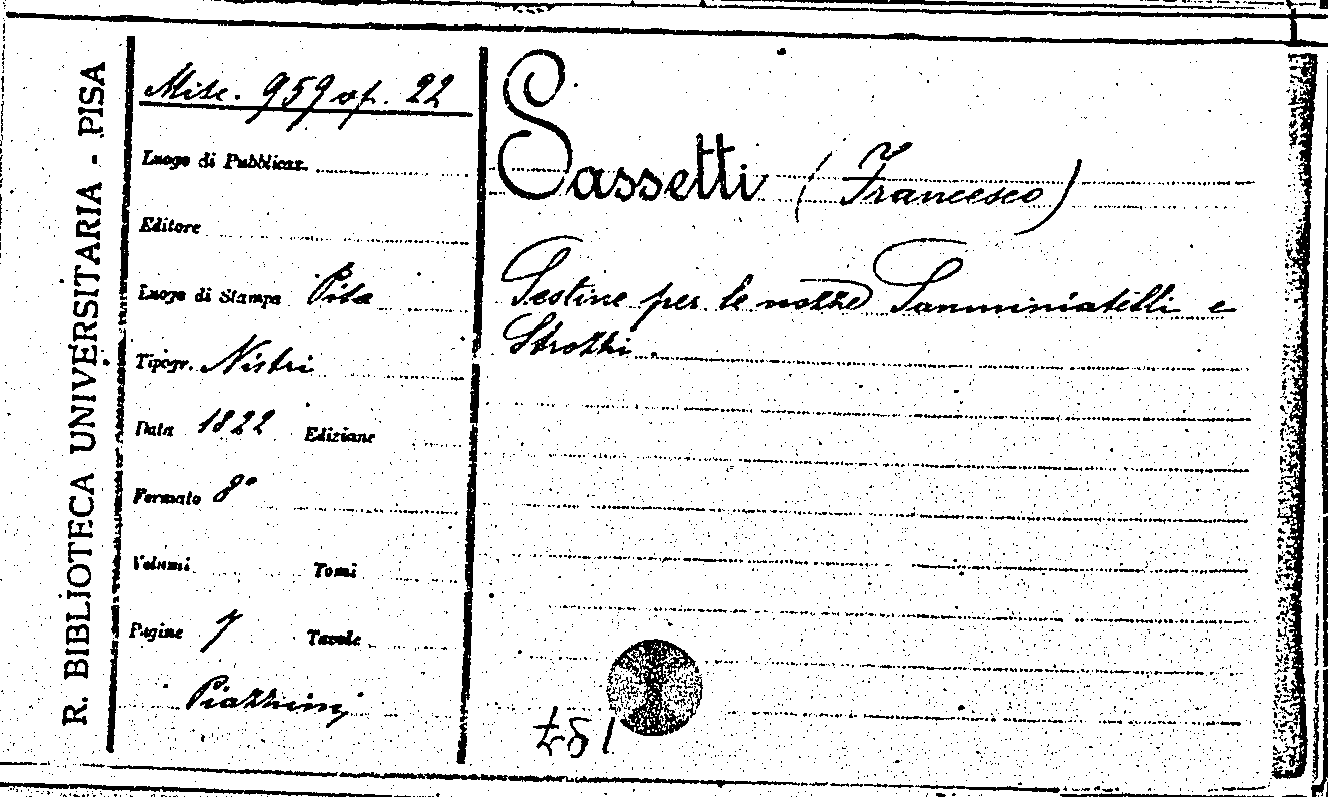 R. BIBLIOTECA UNIVERSITARIA - PISA
Misc. 959 op. 22
Luogo di Pubblicaz.
Editore
Luogo di Stampa Pisa
Tipogr. Nistri
Data 1822 Edizione
Formato 8°
Volumi Tomi
Pagine 7 Tavole
Piazzini
Sassetti (Francesco)
Sestine per le nozze Samminiatelli e
Strozzi.